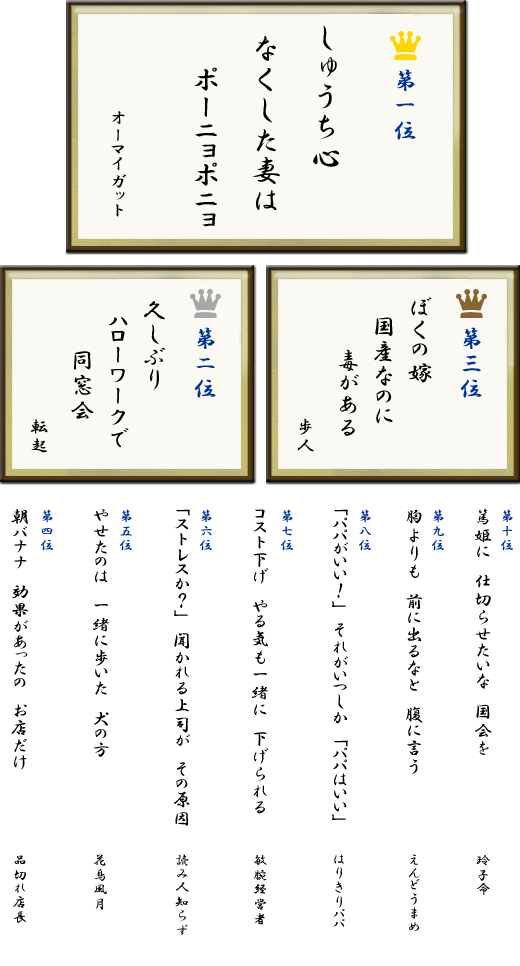 第一位
しゅうち心
なくした妻は
ポーニョポニョ
オーマイガット
第二位
久しぶり
ハローワークで
同窓会
転起
第三位
ぼくの嫁
国産なのに
毒がある
歩人
第四位
朝バナナ 効果があったの お店だけ
品切れ店長
第五位
やせたのは 一緒に歩いた 犬の方
花鳥風月
第六位
「ストレスか?」 聞かれる上司が その原因
読み人知らず
第七位
コスト下げ やる気も一緒に 下げられる
敏腕経営者
第八位
「パパがいい!」 それがいつしか 「パパはいい」
はりきりパパ
第九位
胸よりも 前に出るなと 腹に言う
えんどうまめ
第十位
篤姫に 仕切らせたいな 国会を
玲子命